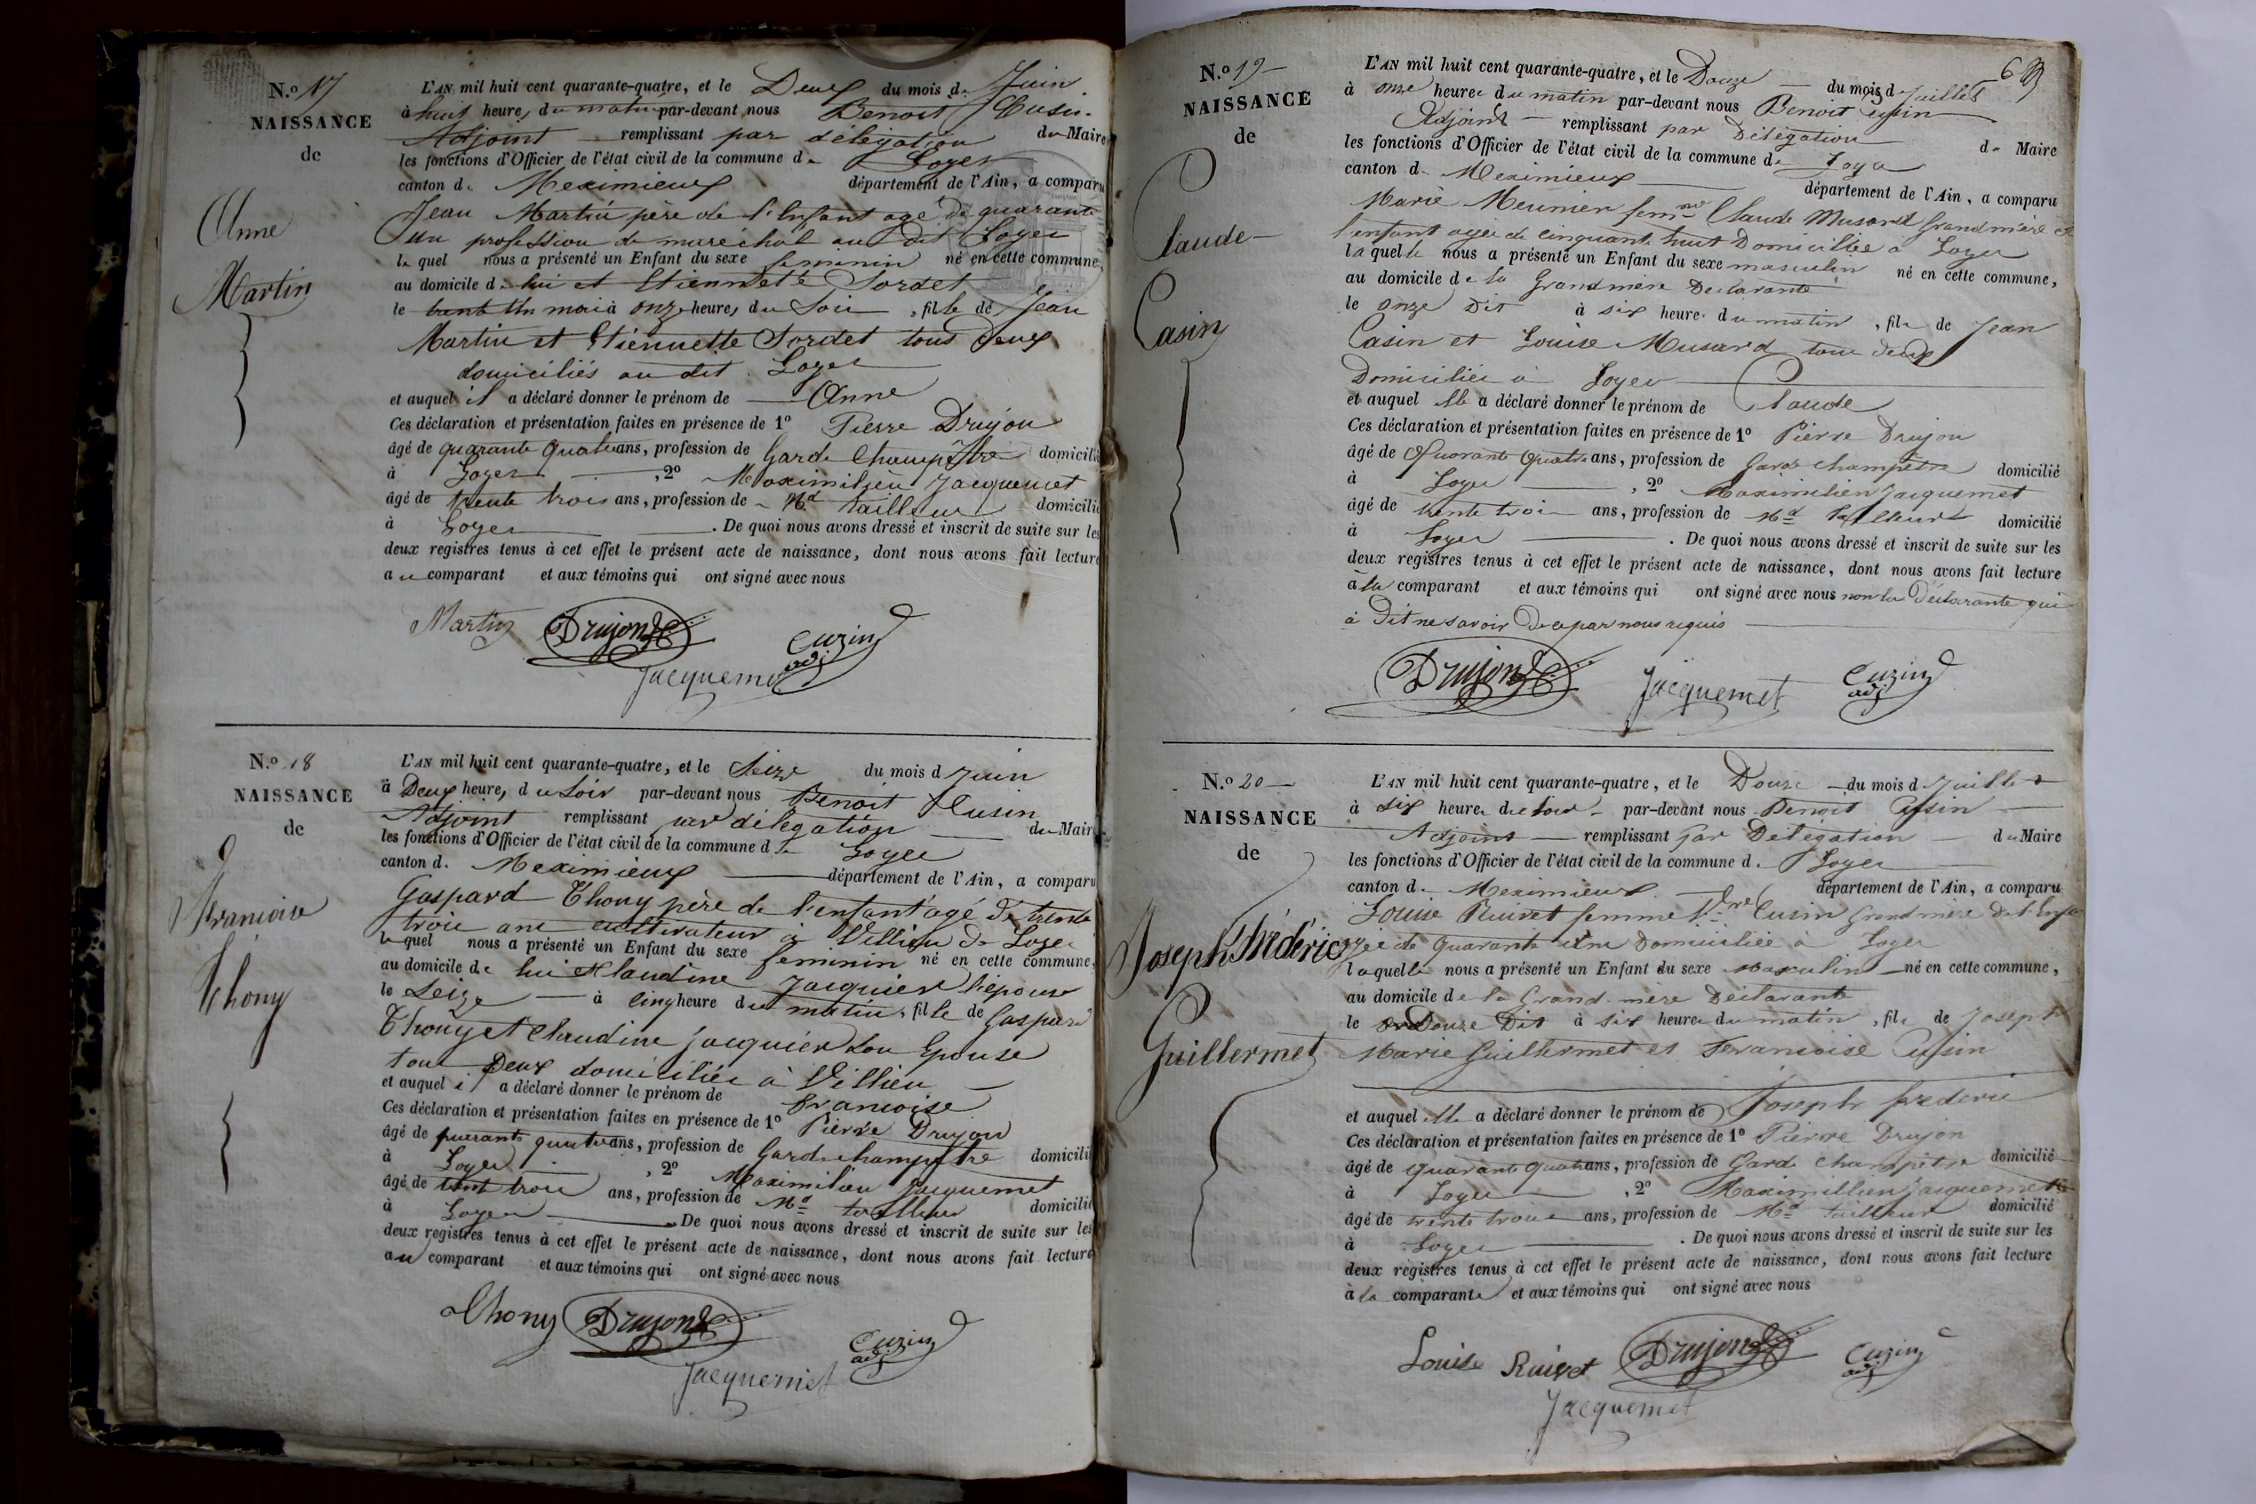 N.º 17
NAISSANCE
de
Anne
Martin
L'AN mil huit cent quarante-quatre, et le Deux du mois de Juin
à huit heures du matin par-devant nous Benoit Cusin
Adjoint remplissant par délégation du Maire
les fonctions d'Officier de l'état civil de la commune de Loyes
canton de Meximieux département de l'Ain, a comparu
Jean Martin père de l'enfant agé de quarante
un profession de maréchal au dit Loyes
le quel nous a présenté un Enfant du sexe feminin né en cette commune,
au domicile de lui et Etiennette Sordet
le trente Un mai à onze heures du Soir, fille de Jean
Martin et Etiennette Sordet tous deux
domiciliés au dit Loyes
et auquel il a déclaré donner le prénom de Anne
Ces déclaration et présentation faites en présence de 1º Pierre Drujon
âgé de quarante quatre ans, profession de Garde Champêtre domicilié
à Loyes, 2º Maximilien Jacquemet
âgé de trente trois ans, profession de Md tailleur domicilié
à Loyes. De quoi nous avons dressé et inscrit de suite sur les
deux registres tenus à cet effet le présent acte de naissance, dont nous avons fait lecture
au comparant et aux témoins qui ont signé avec nous
Martin Drujon Cuzin
adj
Jacquemet
N.º 18
NAISSANCE
de
Francoise
Thony
L'AN mil huit cent quarante-quatre, et le Seize du mois d Juin
à Deux heures du Soir par-devant nous Benoit Cusin
Adjoint remplissant par délégation du Maire
les fonctions d'Officier de l'état civil de la commune de Loyes
canton de Meximieux département de l'Ain, a comparu
Gaspard Thony père de l'enfant agé de trente
trois ans cultivateur à Villieu de Loyes
le quel nous a présenté un Enfant du sexe feminin né en cette commune,
au domicile de lui et Claudine Jacquier l'épouse
le Seize à cinq heure du matin, fille de Gaspard
Thony et Claudine Jacquier son Epouse
tous Deux domiciliés à Villieu
et auquel il a déclaré donner le prénom de Francoise
Ces déclaration et présentation faites en présence de 1º Pierre Drujon
âgé de quarante quatre ans, profession de Garde champetre domicilié
à Loyes, 2º Maximilien Jacquemet
âgé de trente trois ans, profession de Md tailleur domicilié
à Loyes. De quoi nous avons dressé et inscrit de suite sur les
deux registres tenus à cet effet le présent acte de naissance, dont nous avons fait lecture
au comparant et aux témoins qui ont signé avec nous
Thony Drujon Cuzin
adj
Jacquemet
6
N.º 19
NAISSANCE
de
Claude
Casin
L'AN mil huit cent quarante-quatre, et le Douze du mois d Juillet
à onze heures du matin par-devant nous Benoit Cusin
Adjoint remplissant par Délégation du Maire
les fonctions d'Officier de l'état civil de la commune de Loyes
canton de Meximieux département de l'Ain, a comparu
Marie Meunier femme Claude Musard Grand mère de
l'enfant agée de cinquante huit Domiciliée à Loyes
laquelle nous a présenté un Enfant du sexe masculin né en cette commune,
au domicile de la Grand mère Déclarante
le onze Dit à six heures du matin, fils de Jean
Casin et Louise Musard tous deux
Domiciliés à Loyes
et auquel elle a déclaré donner le prénom de Claude
Ces déclaration et présentation faites en présence de 1º Pierre Drujon
âgé de Quarante Quatre ans, profession de Garde champêtre domicilié
à Loyes, 2º Maximilien Jacquemet
âgé de trente trois ans, profession de Md tailleur domicilié
à Loyes. De quoi nous avons dressé et inscrit de suite sur les
deux registres tenus à cet effet le présent acte de naissance, dont nous avons fait lecture
à la comparant et aux témoins qui ont signé avec nous non la Déclarante qui
a Dit ne savoir De ce par nous requis
Drujon Jacquemet Cuzin
adj
N.º 20
NAISSANCE
de
Joseph Fréderic
Guillermet
L'AN mil huit cent quarante-quatre, et le Douze du mois d Juillet
à six heures du soir par-devant nous Benoit Cusin
Adjoint remplissant par Délégation du Maire
les fonctions d'Officier de l'état civil de la commune de Loyes
canton de Meximieux département de l'Ain, a comparu
Louise Ruivet femme Cusin Grand mère De l'enfant
agée de quarante Domiciliée à Loyes
laquelle nous a présenté un Enfant du sexe Masculin né en cette commune,
au domicile de la Grand-mère Déclarante
le Douze Dit à six heures du matin, fils de Joseph
Marie Guillermet et Francoise Cusin
et auquel elle a déclaré donner le prénom de Joseph frederic
Ces déclaration et présentation faites en présence de 1º Pierre Drujon
âgé de quarante quatre ans, profession de Garde Champêtre domicilié
à Loyes, 2º Maximillien Jacquemet
âgé de trente trois ans, profession de Md tailleur domicilié
à Loyes. De quoi nous avons dressé et inscrit de suite sur les
deux registres tenus à cet effet le présent acte de naissance, dont nous avons fait lecture
à la comparante et aux témoins qui ont signé avec nous
Louise Ruivet Drujon Cuzin
adj
Jacquemet